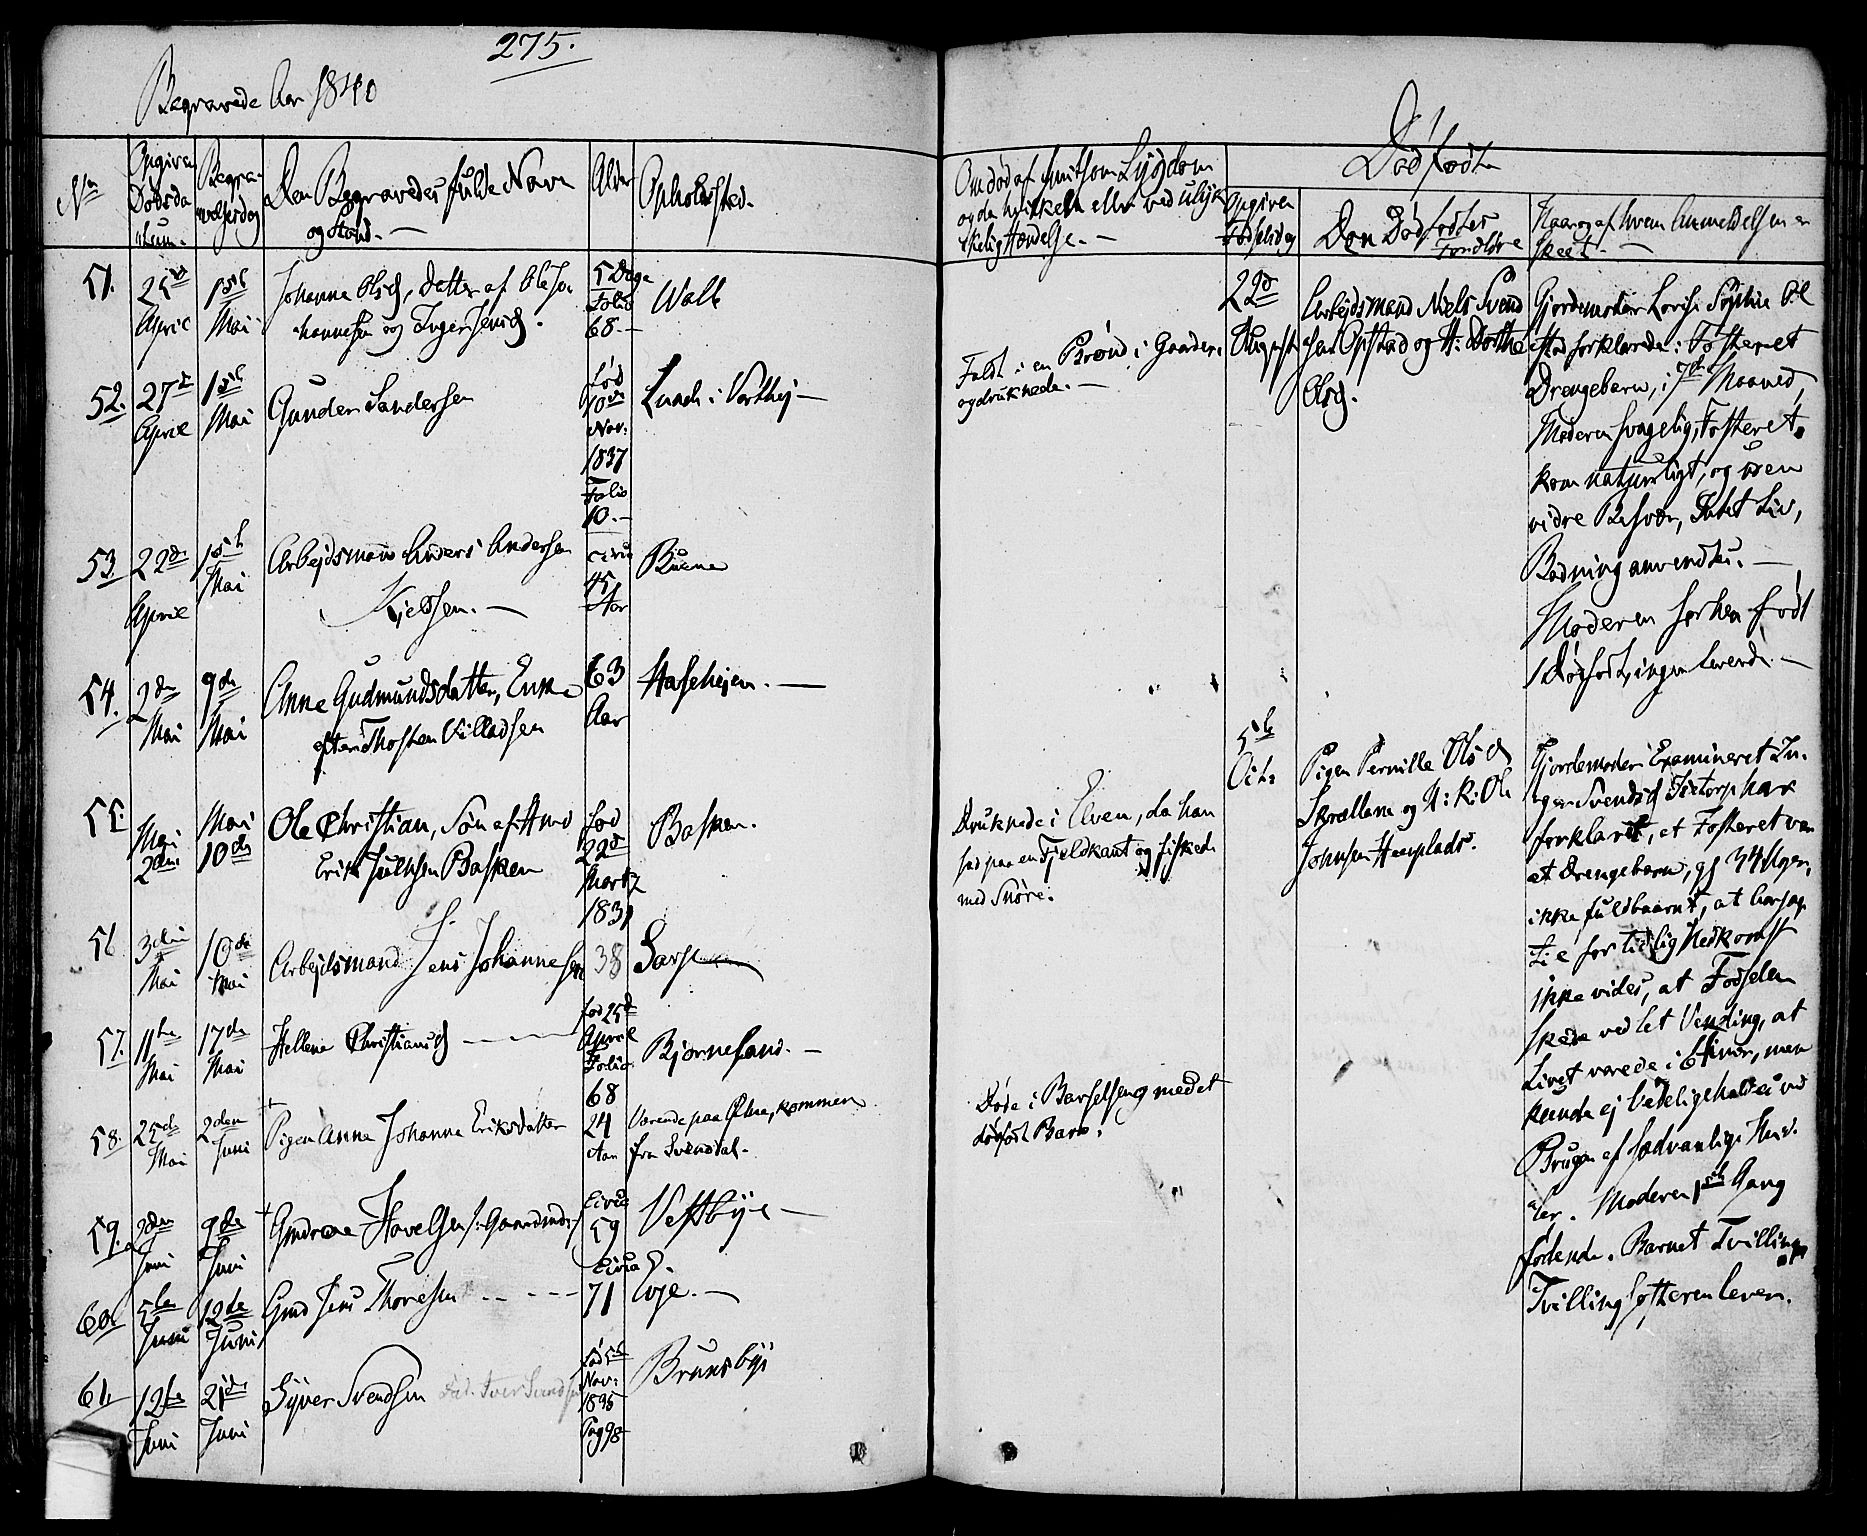 275.
Begravede Aar 1840
No
Opgiven
Dødsda
tum.
Begra-
velsesdag
Den Begravedes fulde Navn
og Stand. —
Alder
Opholdsted.
51.
25de
April
1ste
Mai
Johanne Olsd, Datter af Ole Jo-
hannesen og Inger Jensd.
5 Dage
Folio
68. —
Walle
52.
27de
April
1ste
Mai
Gunder Sandersen
fød
10de
Nov:
1837
Folio
10. —
Lunde i Vorthej —
53.
22de
April
1ste
Mai
Arbejdsmand Anders Andersen
Kjeldsen. —
circa
45
Aar
Buene
54.
2den
Mai
9de
Mai
Anne Gudmundsdatter, Enke
efter Thosten Villadsen
63
Aar
Hasehejen. —
55.
Mai
2den
Mai
10de
Ole Christian, Søn af Gmd
Erik Julusen Basken
fød
22de
Martz
1831
Basken.
56
3die
Mai
10de
Mai
Arbejdsmand Jens Johannesen
38
Sarp
57.
11te
Mai
17de
Mai
Hellene Christiansd —
fød 25de
April
Folio
68
Bjørneland. —
58.
25de
Mai
2den
Juni
Pigen Anne Johanne Eriksdatter
24
Aar
Værende paa Elna, kommen
fra Svendal.
59.
2den
Juni
9de
Juni
Andreas Havelsen /: Gaardmd:/
Circa
59
Vestbye —
60.
5te
Juni
12te
Juni
Gmd Jens Thoresen — — —
Circa
71
Evje. —
61.
12te
Juni
21de
Juni
Syver Svendsen
Iver Svendsen
fød 5te
Nov:
1835
Pag 98
Brunsbye
Om død af smitsom Sygdom
og da hvilken eller ved ulyk-
kelig Hændelse. —
Faldt i en Brønd i Gaarden
og druknede. —
Druknede i Elven, da han
sad paa en Fjeldkant og fiskede
med Snøre.
Døde i Barselseng med et
dødfødt Barn.
Dødfødte
Opgiven
Fødselsdag
Den Dødfødtes
Forældre
Naar og af hvem Anmeldelsen er
skeet. —
22de
August
Arbejdsmand Niels Svend
sen Opstad og H: Dorthe
Olsd.
Gjordemoder Lovise Sophie Øl
stad forklarede: Fosteret
Drengebarn, i 7de Maaned,
Moderen svagelig, Fosteret
kom naturligt, og uden
vidre Besvær, Intet Liv,
Redning anvendtes. —
Moderen forhen født
1 Dødfødt, ingen levende. —
5te
Octr
Pigen Pernille Olsd
Skrallene og U: K: Ole
Johnsen Hauglads.
Gjordemoder Examineret In-
ger Svendsd Tistorp har
forklaret, at Fosteret var
et Drengebarn, 34 Uger,
ikke fuldbaaret, at Aarsag
til for tidlig Nedkomst
ikke vides, at Fødselen
skede ved let Vending, at
Livet varede i 6 Timer, men
kunde ej vedligeholdes ved
Brugen af sædvanlige Mid-
ler. Moderen 1ste Gang
fødende. Barnet Tvilling,
Tvillingsøsteren lever.